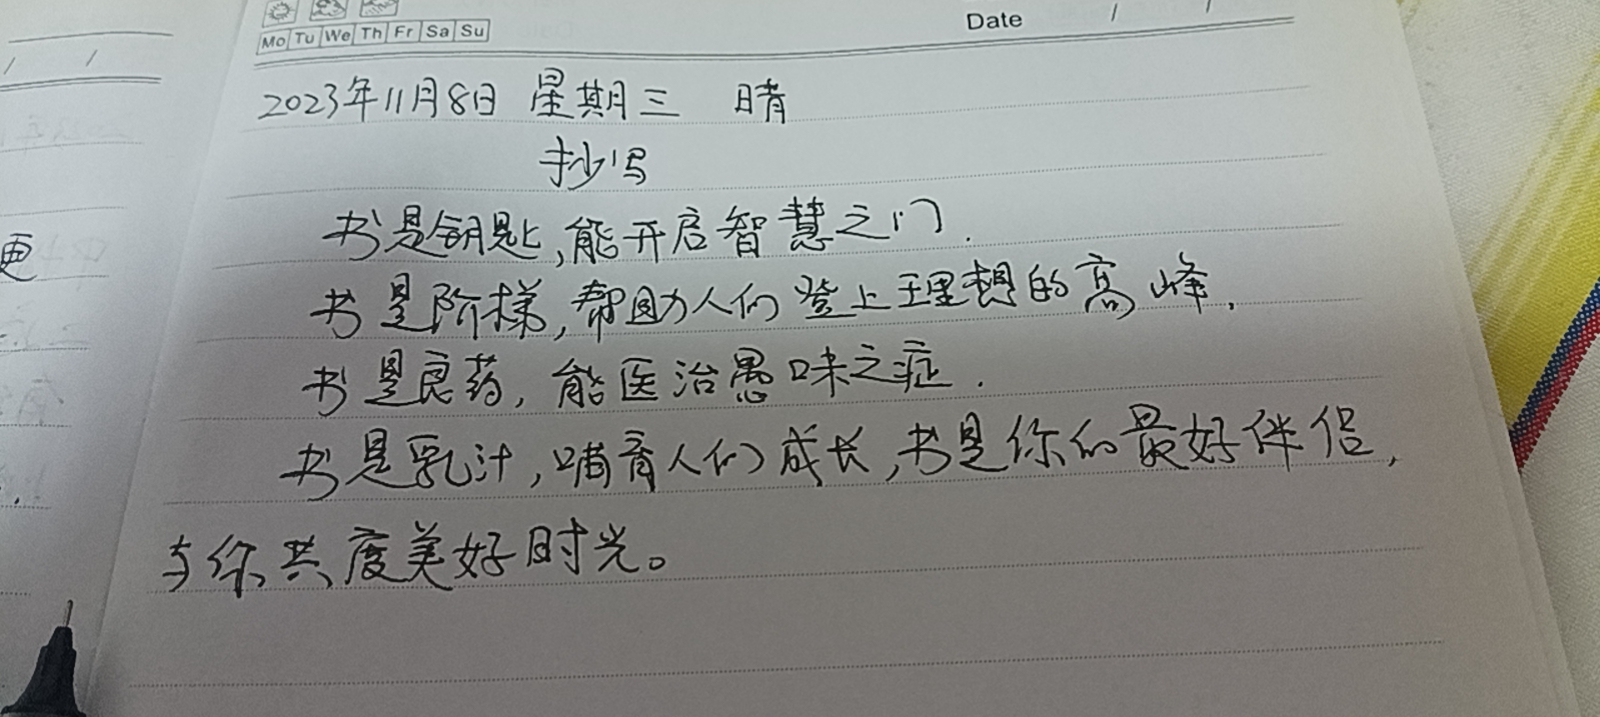 Mo Tu We Th Fr Sa Su
Date / /
2023年11月8日 星期三 晴
抄写
书是钥匙,能开启智慧之门.
书是阶梯,帮助人们登上理想的高峰.
书是良药,能医治愚味之症.
书是乳汁,哺育人们成长,书是你的最好伴侣,
与你共度美好时光。
更